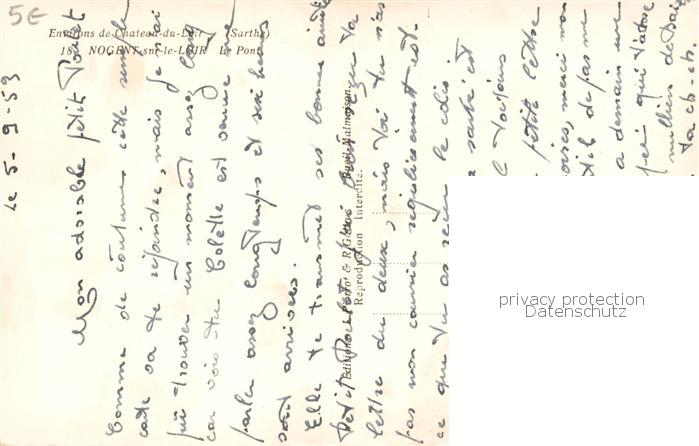 5€
Environs de Chateau-du-Loir (Sarthe)
18. NOGENT-sur-le-LOIR Le Pont
Le 5-9-53
Mon adorable petit Poulet
Comme de coutume cette simple
carte va te rejoindre, mais j'ai
pu trouver un moment assez long
car vois-tu Colette est venue me
parler assez longtemps et six heures
sont arrivées.
Elle te transmet ses bonne amitié
Petit Poulet, j'ai bien reçu ta
lettre du deux, mais toi tu n'as
pas mon courrier régulièrement est-
ce que tu as reçu le colis
petite lettre
merci mon
de pas me
a demain une
qui t'adore
milliers de baisers
ta ch-ch.
Editions J. Porro & R. Gatier Rueil-Malmaison
Reproduction Interdite.
privacy protection
Datenschutz